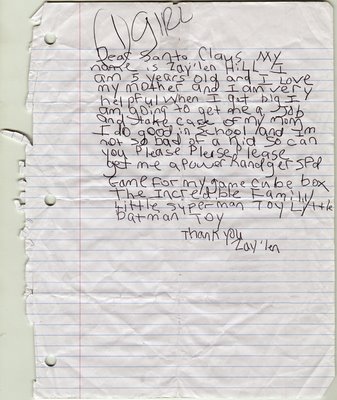 1 girl
Dear Santa Claus My
name is Zay'len Hill I
am 5 years old and I Love
my mother and I am very
helpful when I get big I
am going to get me a Job
and take care of my mom
I do good in school and I'm
not so bad of a kid so can
you Please Please Please
get me a Power Ranger SPd
Game for my game cube box
The Incredible Family
Little superman Toy Little
batman Toy
Thank you
Zay'len